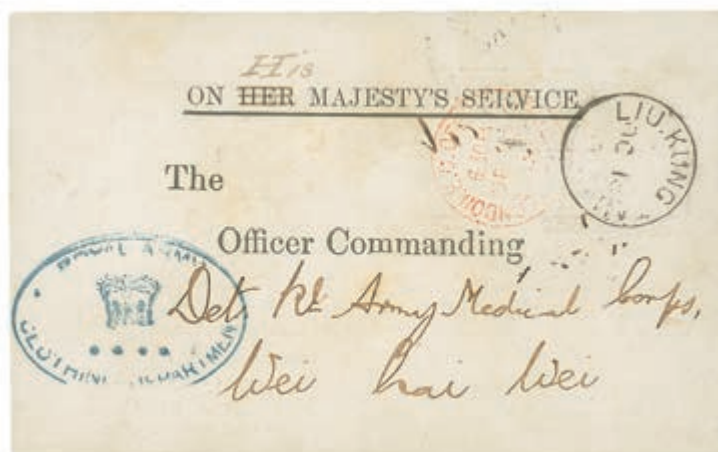 His
ON HER MAJESTY'S SERVICE
LIU.KUNG
The
Officer Commanding
ROYAL ARMY
CLOTHING DEPARTMENT
Det Rl Army Medical Corps,
Wei hai Wei